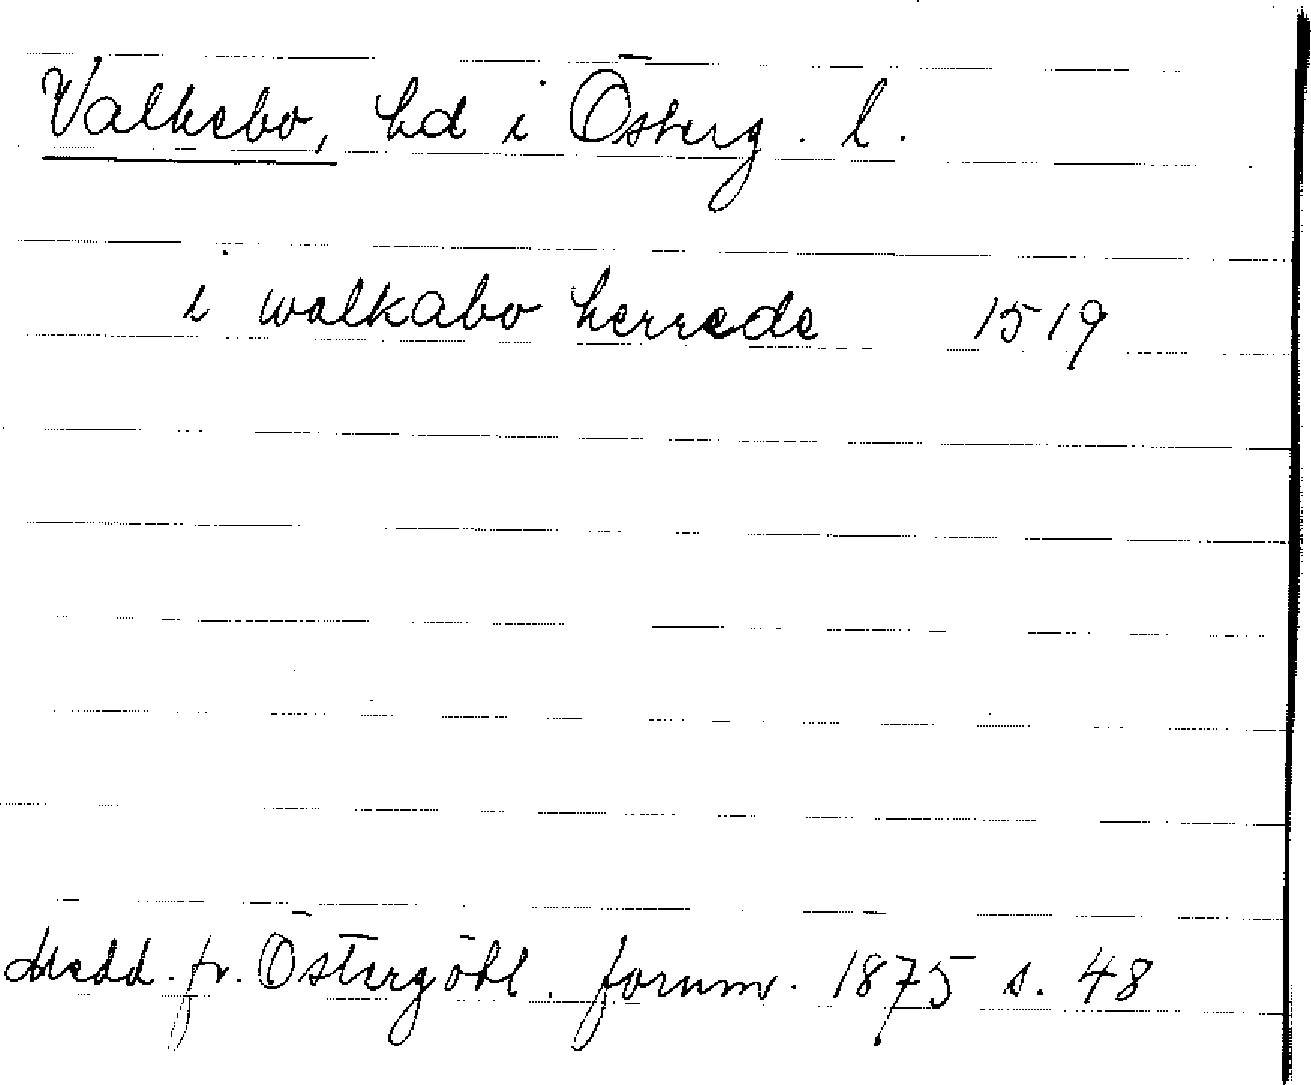 Valkebo, hd i Österg. l.
i walkabo herrede 1519
Medd. fr. Östergötl. fornm. 1875 s. 48